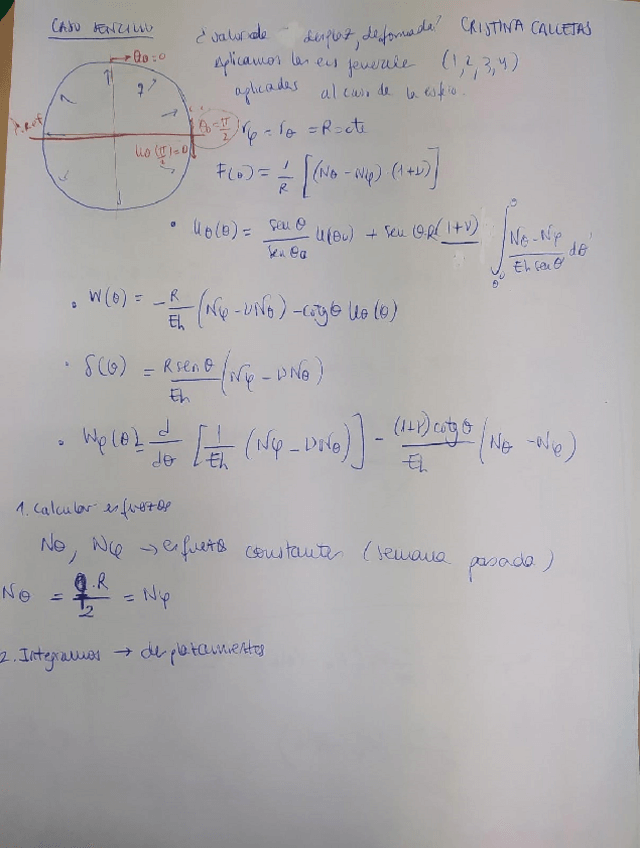 CASO SENCILLO
¿valor de desplaz, deformada? CRISTINA CALLETAS
Aplicamos las ecs generales (1,2,3,4)
aplicadas al caso de la esfera.
θ₀=0
θ₀=π/2
u_θ(π/2)=0
r_φ = r_θ = R = cte
F(θ) = 1/R [(N_θ - N_φ) · (1+ν)]
• u_θ(θ) = sen θ / sen θ₀ u(θ₀) + sen θ·R(1+ν) ∫ N_θ - N_φ / Eh sen θ dθ'
• W(θ) = - R/Eh (N_φ - νN_θ) - cotg θ u_θ(θ)
• δ(θ) = R sen θ / Eh (N_φ - νN_θ)
• W_φ(θ) = d/dθ [1/Eh (N_φ - νN_θ)] - (1+ν) cotg θ / Eh (N_θ - N_φ)
1. Calcular esfuerzos
N_θ, N_φ → esfuerzos constantes (semana pasada)
N_θ = q.R / 2 = N_φ
2. Integramos → desplazamientos